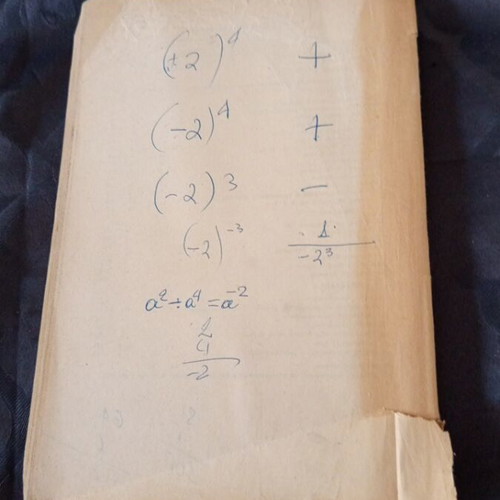 (+2)⁴ +
(-2)⁴ +
(-2)³ -
(-2)⁻³ 1/-2³
a² ÷ a⁴ = a⁻²
2
4
-2